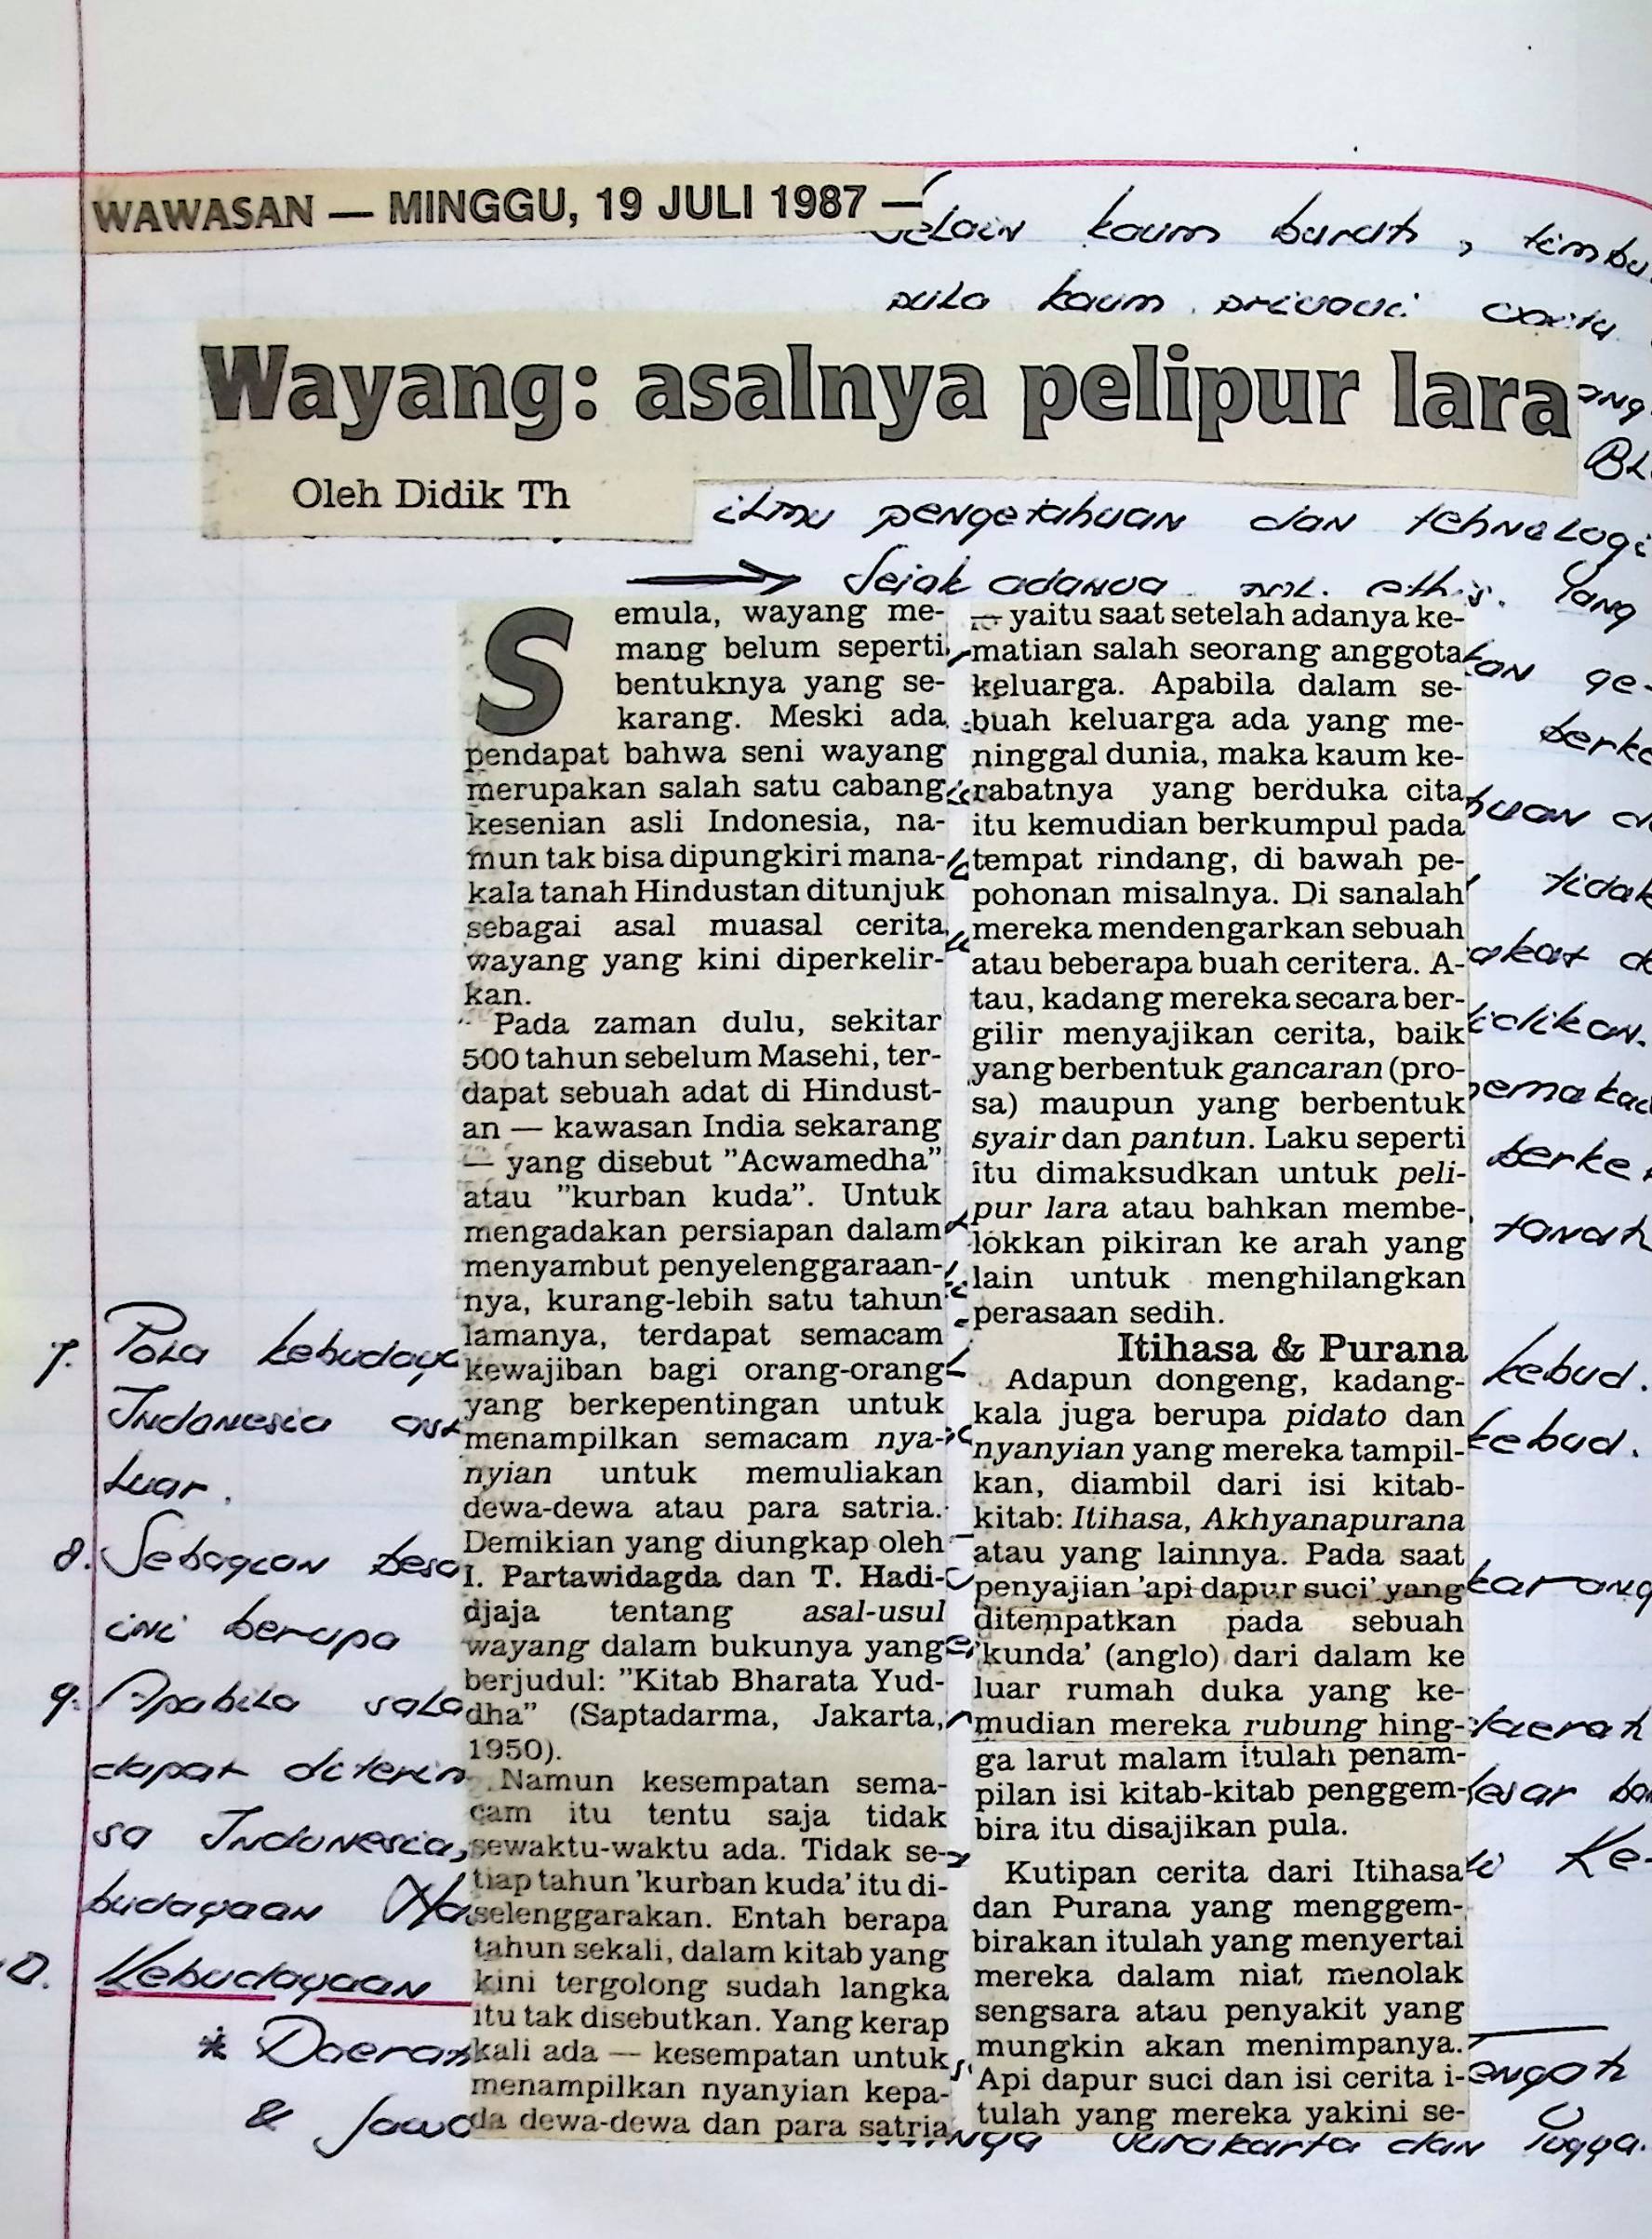 WAWASAN — MINGGU, 19 JULI 1987 —
Selain kaum buruh, timbu
pula kaum
Wayang: asalnya pelipur lara
ang
BL
Oleh Didik Th
ilmu pengetahuan dan tehnologi
→ Sejak adanya pol. ethis. yang
Semula, wayang me-
mang belum seperti
bentuknya yang se-
karang. Meski ada
pendapat bahwa seni wayang
merupakan salah satu cabang
kesenian asli Indonesia, na-
mun tak bisa dipungkiri mana-
kala tanah Hindustan ditunjuk
sebagai asal muasal cerita
wayang yang kini diperkelir-
kan.
Pada zaman dulu, sekitar
500 tahun sebelum Masehi, ter-
dapat sebuah adat di Hindust-
an — kawasan India sekarang
— yang disebut "Acwamedha"
atau "kurban kuda". Untuk
mengadakan persiapan dalam
menyambut penyelenggaraan-
nya, kurang-lebih satu tahun
lamanya, terdapat semacam
kewajiban bagi orang-orang
yang berkepentingan untuk
menampilkan semacam nya-
nyian untuk memuliakan
dewa-dewa atau para satria.
Demikian yang diungkap oleh
I. Partawidagda dan T. Hadi-
djaja tentang asal-usul
wayang dalam bukunya yang
berjudul: "Kitab Bharata Yud-
dha" (Saptadarma, Jakarta,
1950).
Namun kesempatan sema-
cam itu tentu saja tidak
sewaktu-waktu ada. Tidak se-
tiap tahun 'kurban kuda' itu di-
selenggarakan. Entah berapa
tahun sekali, dalam kitab yang
kini tergolong sudah langka
itu tak disebutkan. Yang kerap
kali ada — kesempatan untuk
menampilkan nyanyian kepa-
da dewa-dewa dan para satria
— yaitu saat setelah adanya ke-
matian salah seorang anggota
keluarga. Apabila dalam se-
buah keluarga ada yang me-
ninggal dunia, maka kaum ke-
rabatnya yang berduka cita
itu kemudian berkumpul pada
tempat rindang, di bawah pe-
pohonan misalnya. Di sanalah
mereka mendengarkan sebuah
atau beberapa buah ceritera. A-
tau, kadang mereka secara ber-
gilir menyajikan cerita, baik
yang berbentuk gancaran (pro-
sa) maupun yang berbentuk
syair dan pantun. Laku seperti
itu dimaksudkan untuk peli-
pur lara atau bahkan membe-
lokkan pikiran ke arah yang
lain untuk menghilangkan
perasaan sedih.
Itihasa & Purana
Adapun dongeng, kadang-
kala juga berupa pidato dan
nyanyian yang mereka tampil-
kan, diambil dari isi kitab-
kitab: Itihasa, Akhyanapurana
atau yang lainnya. Pada saat
penyajian 'api dapur suci' yang
ditempatkan pada sebuah
'kunda' (anglo) dari dalam ke
luar rumah duka yang ke-
mudian mereka rubung hing-
ga larut malam itulah penam-
pilan isi kitab-kitab penggem-
bira itu disajikan pula.
Kutipan cerita dari Itihasa
dan Purana yang menggem-
birakan itulah yang menyertai
mereka dalam niat menolak
sengsara atau penyakit yang
mungkin akan menimpanya.
Api dapur suci dan isi cerita i-
tulah yang mereka yakini se-
kan ge-
berke
huan d
tidak
akat d
emakai
berke
tanah
kebud.
kebud.
karang
daerah
besar ba
Ke-
engah
Surakarta dan Yogya.
7. Pola kebudaya
Indonesia
luar.
8. Sebagian besa
ini berupa
9. Apabila
dapat diterim
sa Indonesia,
budayaan Na
0. Kebudayaan
* Daerah
& Jawa